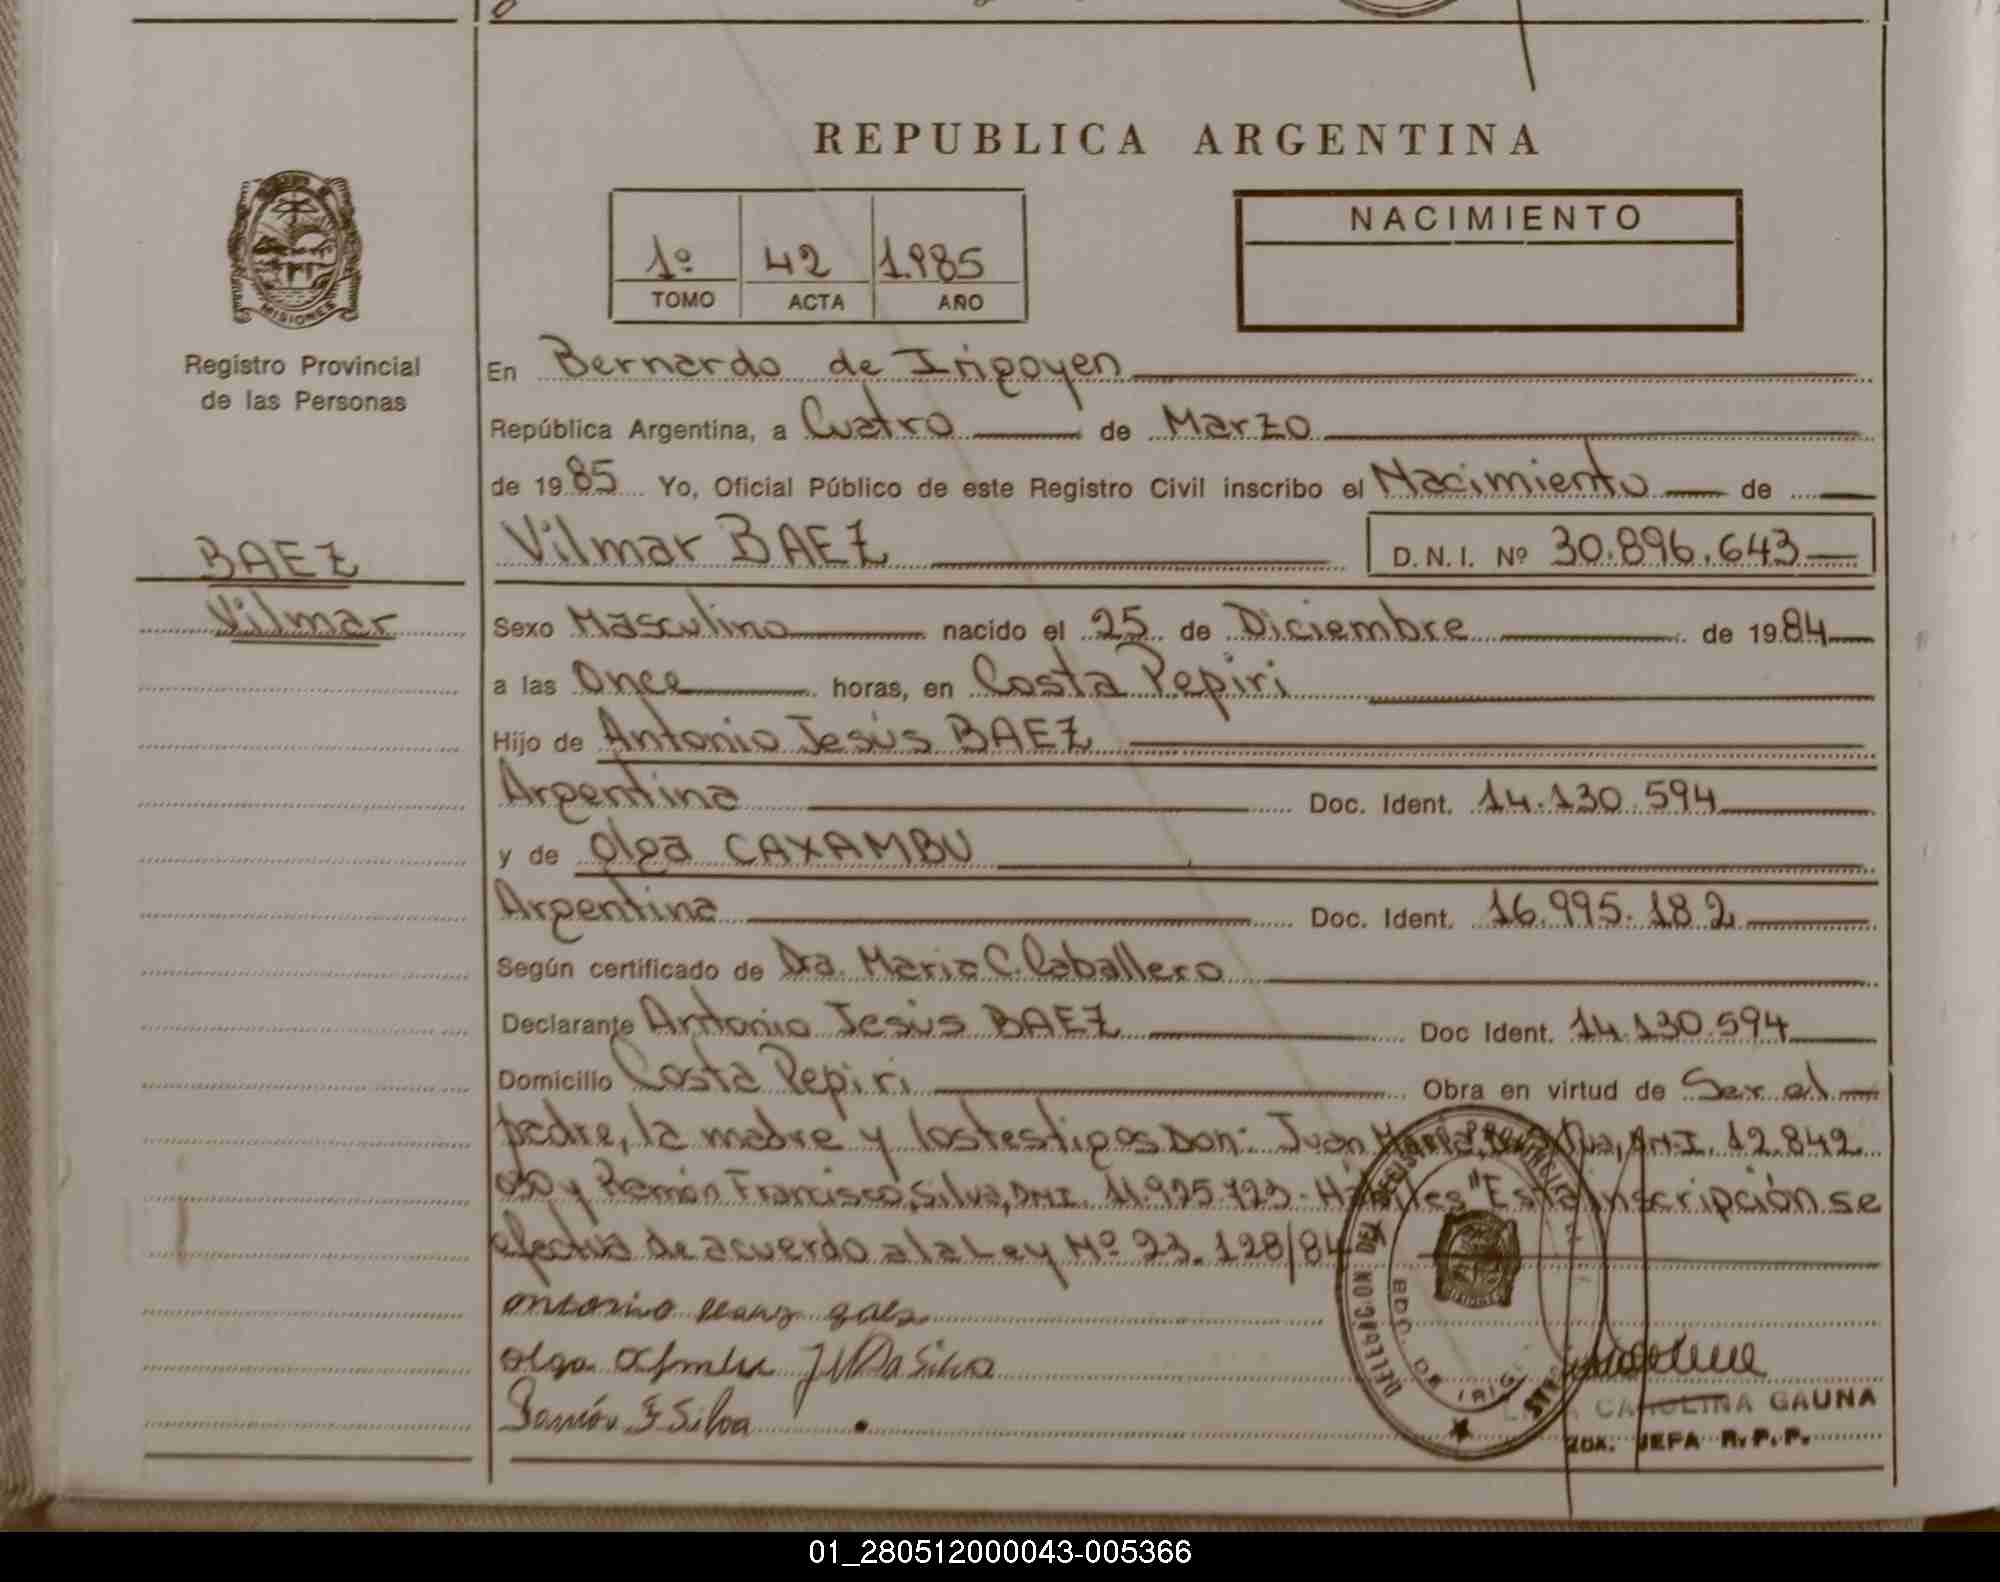 REPUBLICA ARGENTINA
MISIONES
Registro Provincial
de las Personas
1º 42 1.985
TOMO ACTA AÑO
NACIMIENTO
En Bernardo de Irigoyen
República Argentina, a Cuatro de Marzo
de 19 85 Yo, Oficial Público de este Registro Civil inscribo el Nacimiento de
BAEZ
Vilmar
Vilmar BAEZ D.N.I. Nº 30.896.643
Sexo Masculino nacido el 25 de Diciembre de 19 84
a las Once horas, en Costa Pepiri
Hijo de Antonio Jesús BAEZ
Argentina Doc. Ident. 14.130.594
y de Olga CAXAMBU
Argentina Doc. Ident. 16.995.182
Según certificado de Dra. Maria C. Caballero
Declarante Antonio Jesús BAEZ Doc Ident. 14.130.594
Domicilio Costa Pepiri Obra en virtud de Ser el
padre, la madre y los testigos Don: Juan D.N.I. 12.842.
y Ramón Francisco Silva, D.N.I. 11.925.723. Hábiles "Esta Inscripción se
efectua de acuerdo a la Ley Nº 23.128/84
olga J M Da Silva
Ramón F Silva
CAROLINA GAUNA
JEFA R.P.P.
01_280512000043-005366